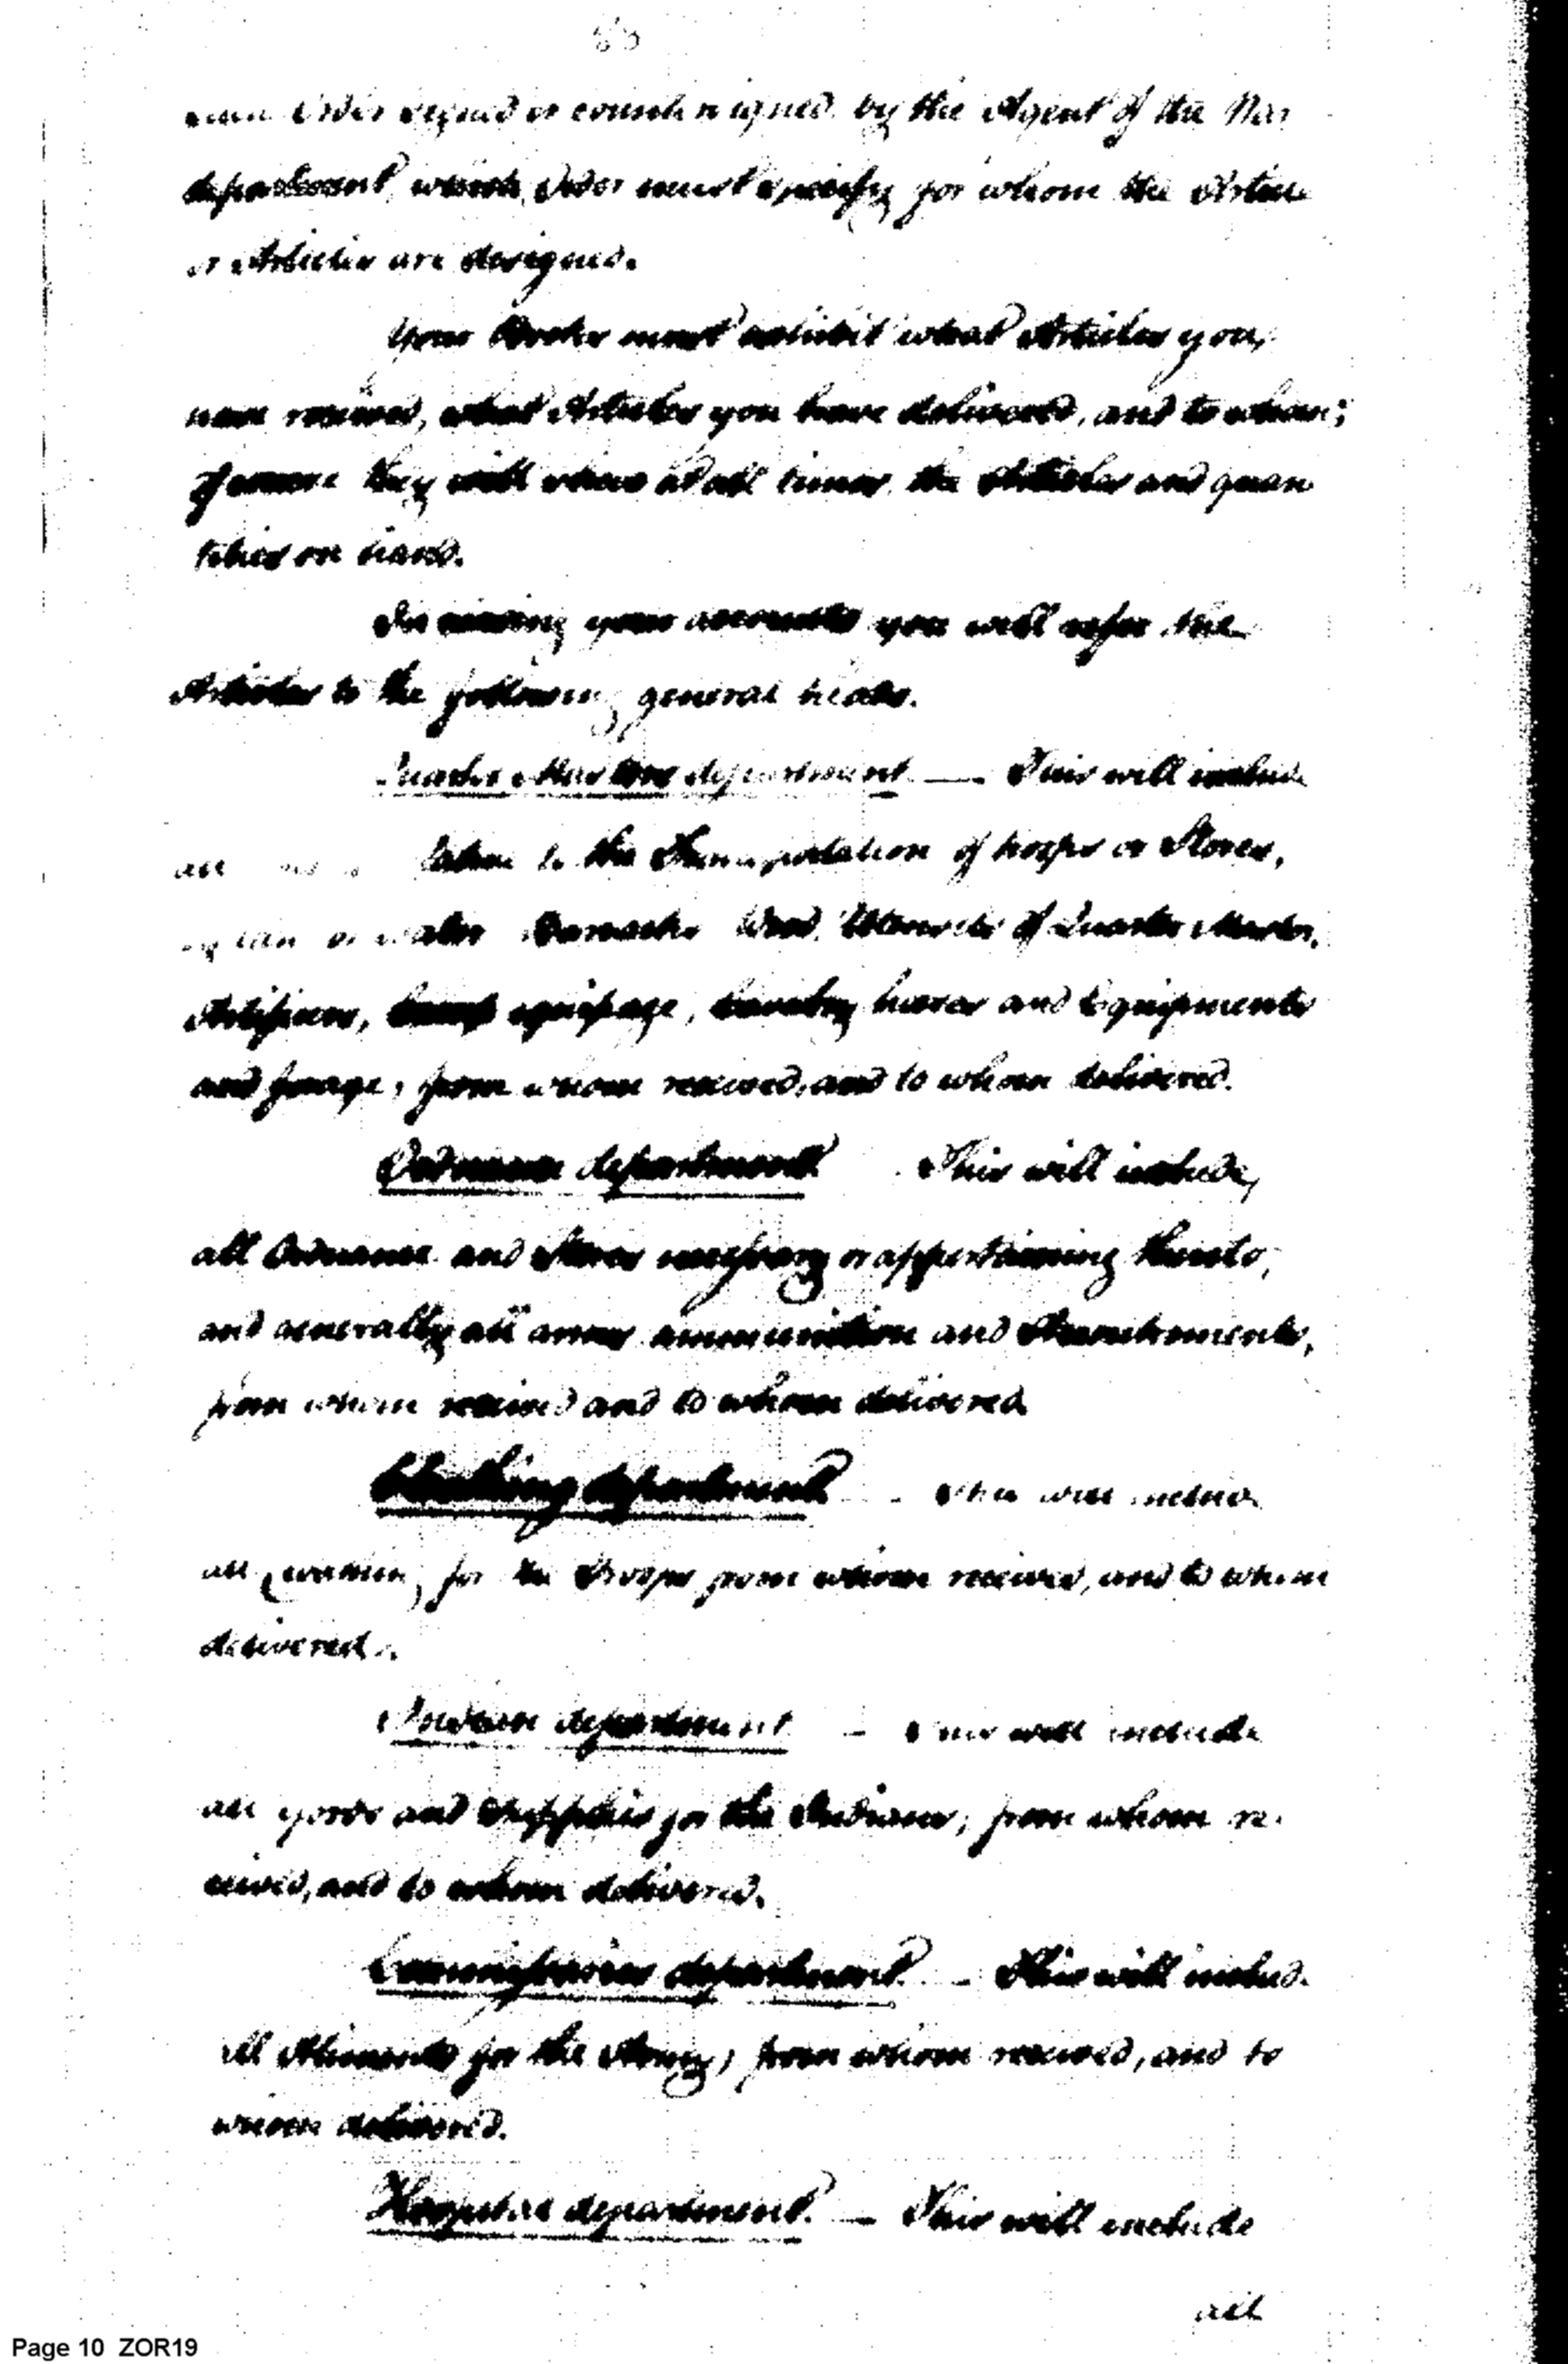 58
Order signed or countersigned by the Agent of the War
department, which order must specify for whom the Article
or Articles are designed.
Your Books must exhibit what Articles you
have received, what Articles you have delivered, and to whom;
of course they will shew at all times the Articles and quan
tities on hand.
In your accounts you will refer the
Articles to the following general heads.
Quarter Masters department — This will include
all to the Transportation of troops or Stores,
by land or water Barracks Wood, Utensils of Quarter Master,
Artificers, Camp equipage, Cavalry horses and Equipments
and forage, from whom received, and to whom delivered.
Ordnance department This will include,
all Ordnance and Stores necessary or appertaining thereto,
and generally all arms ammunition and Accoutrements,
from whom received and to whom delivered
Cloathing department — This will include
all for the Troops from whom received, and to whom
delivered.
Indian department — This will include
all goods and supplies for the Indians, from whom re
ceived, and to whom delivered.
Commissaries department — This will include
all Aliments for the Army, from whom received, and to
whom delivered.
Hospital department. — This will include
all
Page 10 ZOR19